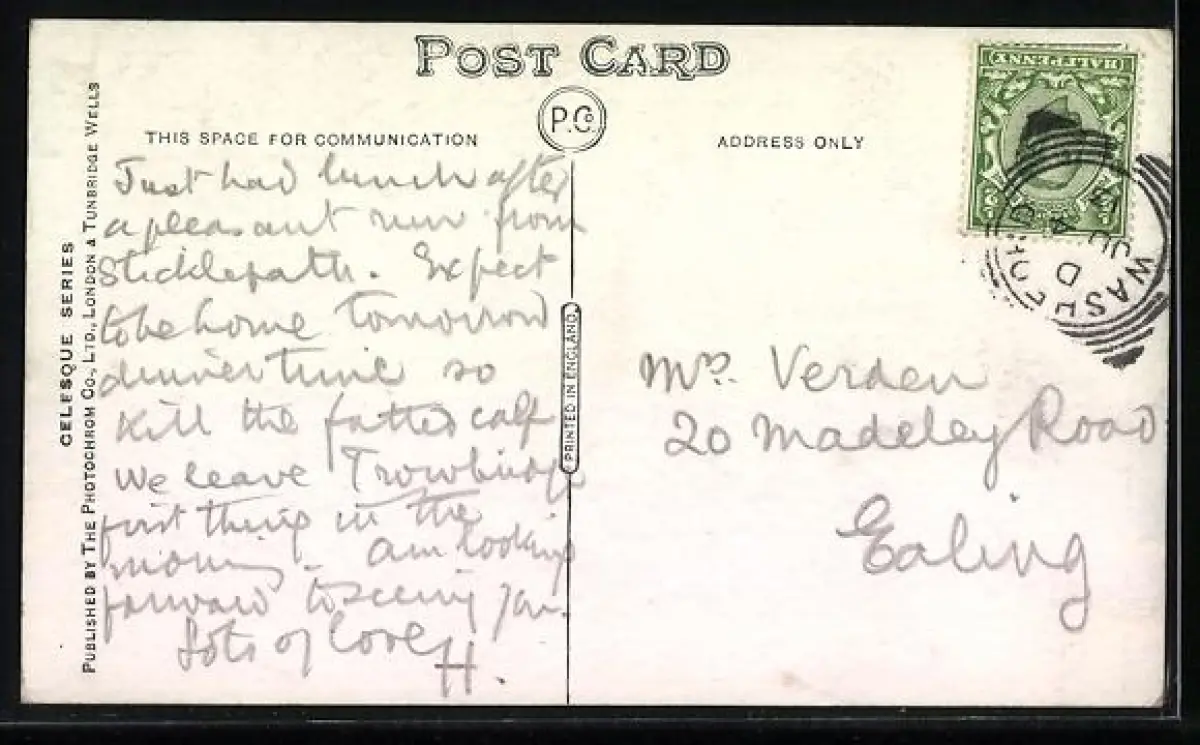 POST CARD
P.Co.
THIS SPACE FOR COMMUNICATION
ADDRESS ONLY
CELESQUE SERIES
PUBLISHED BY THE PHOTOCHROM CO., LTD., LONDON & TUNBRIDGE WELLS
PRINTED IN ENGLAND
Just had lunch after
a pleasant run from
Sticklepath. Expect
to be home tomorrow
dinner time so
kill the fatted calf
We leave Trowbridge
first thing in the
morning. Am looking
forward to seeing you.
Lots of love
H.
Mrs. Verden
20 Madeley Road
Ealing
HALFPENNY
WASHFORD
D
JU 4